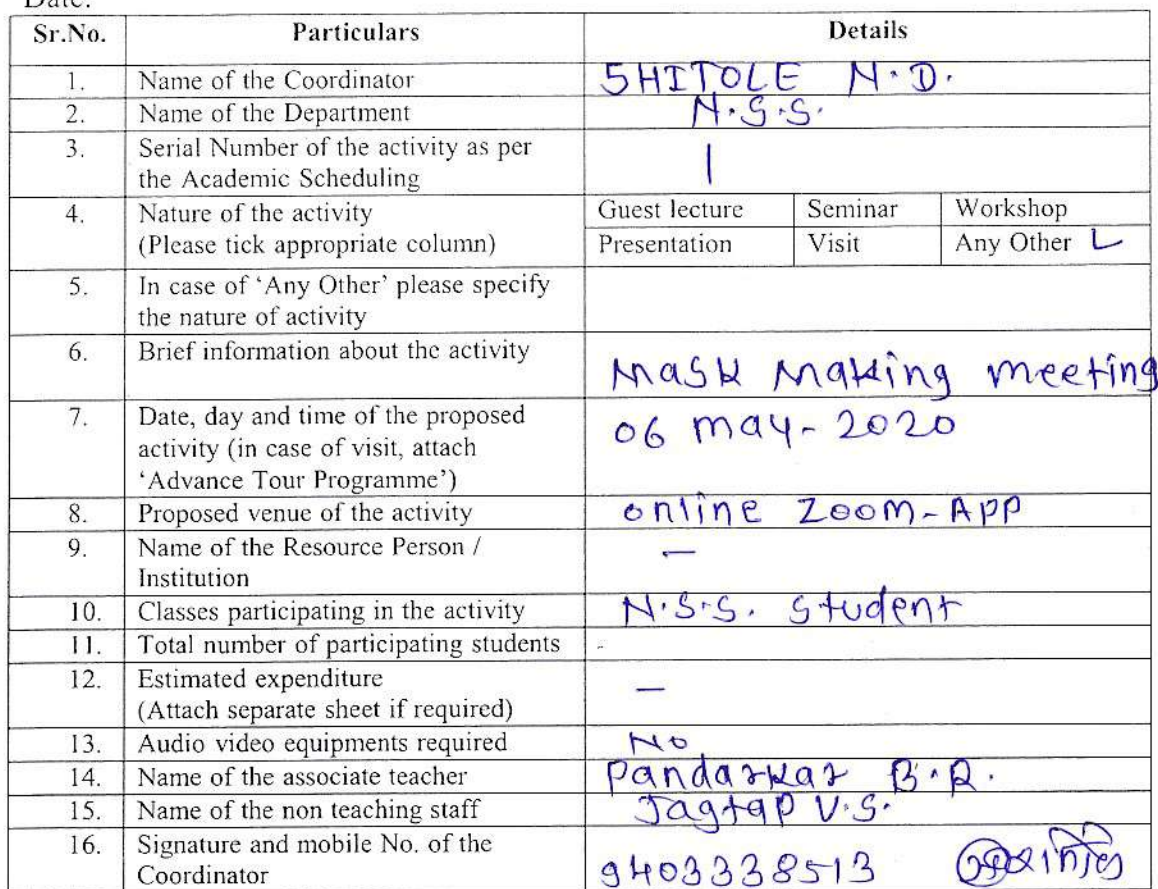 Date:
Sr.No. Particulars Details
1. Name of the Coordinator SHITOLE N.D.
2. Name of the Department N.S.S.
3. Serial Number of the activity as per
the Academic Scheduling 1
4. Nature of the activity Guest lecture Seminar Workshop
(Please tick appropriate column) Presentation Visit Any Other
5. In case of ‘Any Other’ please specify
the nature of activity
6. Brief information about the activity
Mask Making meeting
7. Date, day and time of the proposed 06 may-2020
activity (in case of visit, attach
‘Advance Tour Programme’)
8. Proposed venue of the activity online Zoom-App
9. Name of the Resource Person / -
Institution
10. Classes participating in the activity N.S.S. Student
11. Total number of participating students -
12. Estimated expenditure -
(Attach separate sheet if required)
13. Audio video equipments required No
14. Name of the associate teacher Pandarkar B.R.
15. Name of the non teaching staff Jagtap V.S.
16. Signature and mobile No. of the
Coordinator 9403338513